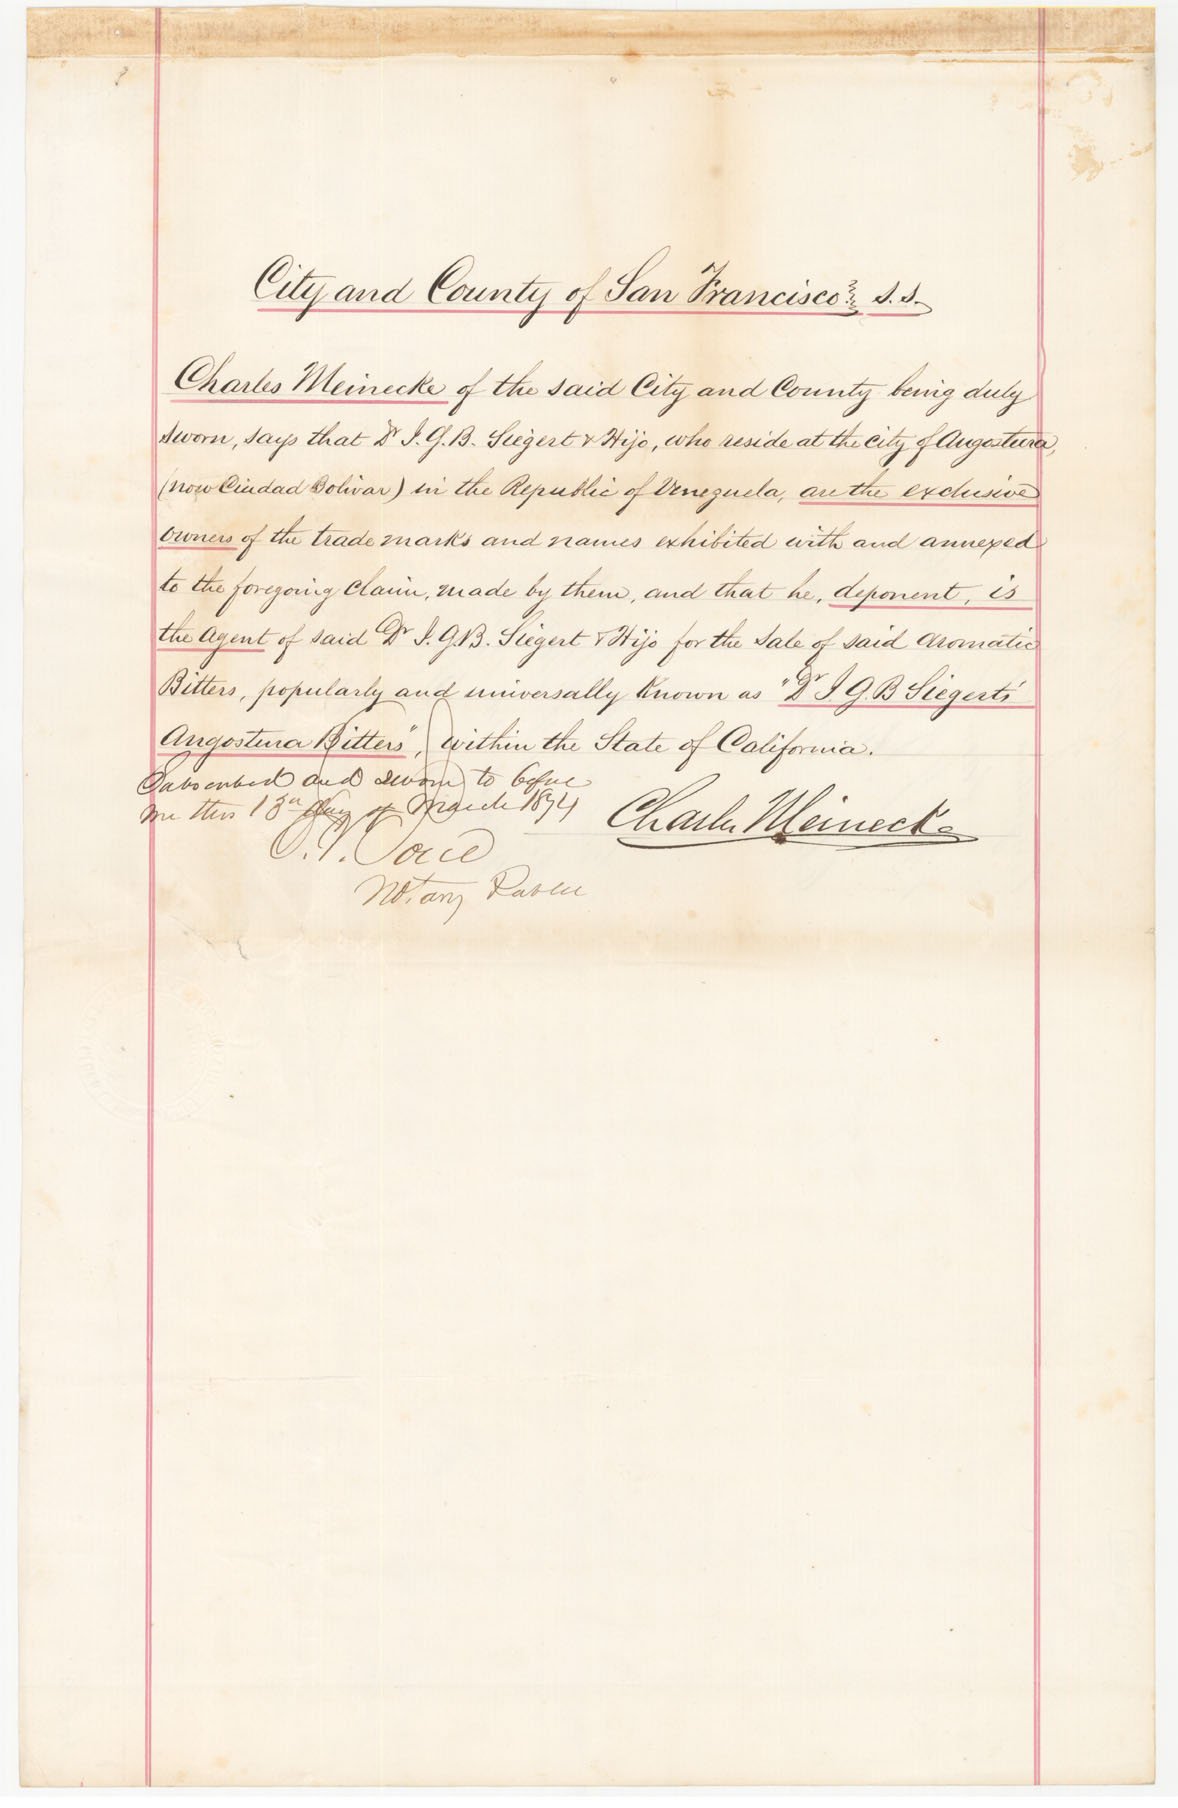 City and County of San Francisco } s.s.
Charles Meinecke of the said City and County being duly
sworn, says that Dr J. G. B. Siegert & Hijo, who reside at the city of Angostura,
(now Ciudad Bolivar) in the Republic of Venezuela, are the exclusive
owners of the trade marks and names exhibited with and annexed
to the foregoing claim, made by them, and that he, deponent, is
the Agent of said Dr J. G. B. Siegert & Hijo for the sale of said Aromatic
Bitters, popularly and universally known as "Dr J. G. B Siegerts'
Angostura Bitters", within the State of California.
Subscribed and sworn to before
me this 13th day of March 1874
Charles Meinecke
Notary Public